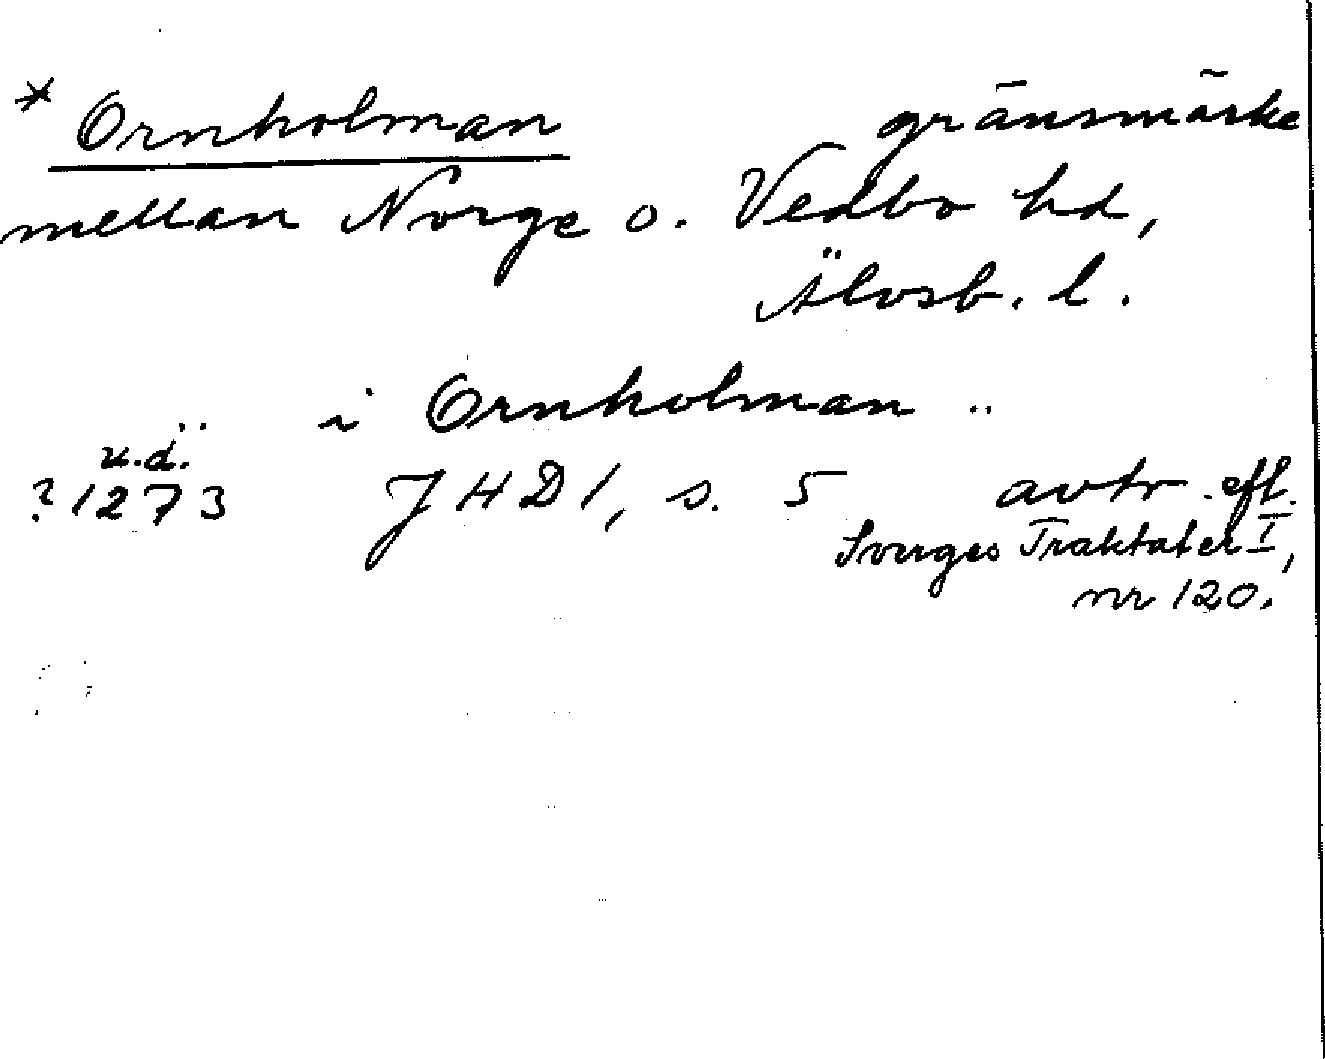 * Ornholman gränsmärke
mellan Norge o. Vedbo hd,
Älvsb. l.
.. i Ornholman ..
u.d.
? 1273 JHD 1, s. 5 avtr. eft.
Sverges Traktater I,
nr 120.